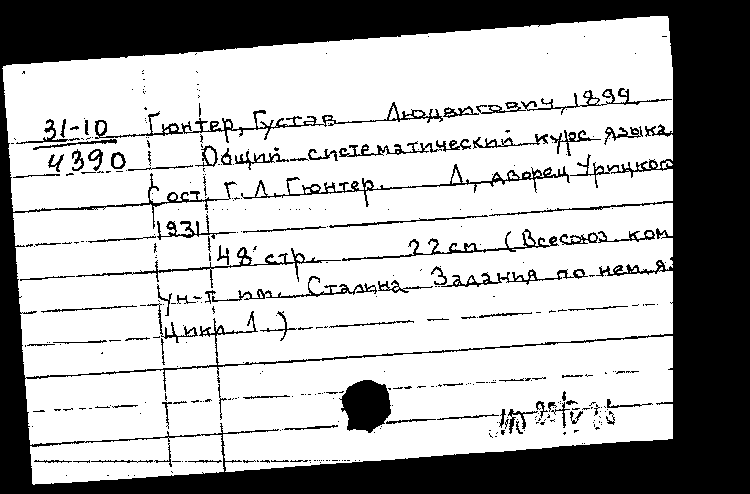 31-10
4390
Гюнтер, Густав Людвигович, 1899
Общий систематический курс языка
Сост. Г. Л. Гюнтер. Л., дворец Урицкого
1931.
48 стр. 22 см (Всесоюз. ком
ун-т им. Сталина Задания по нем. я.
Цикл 1.)